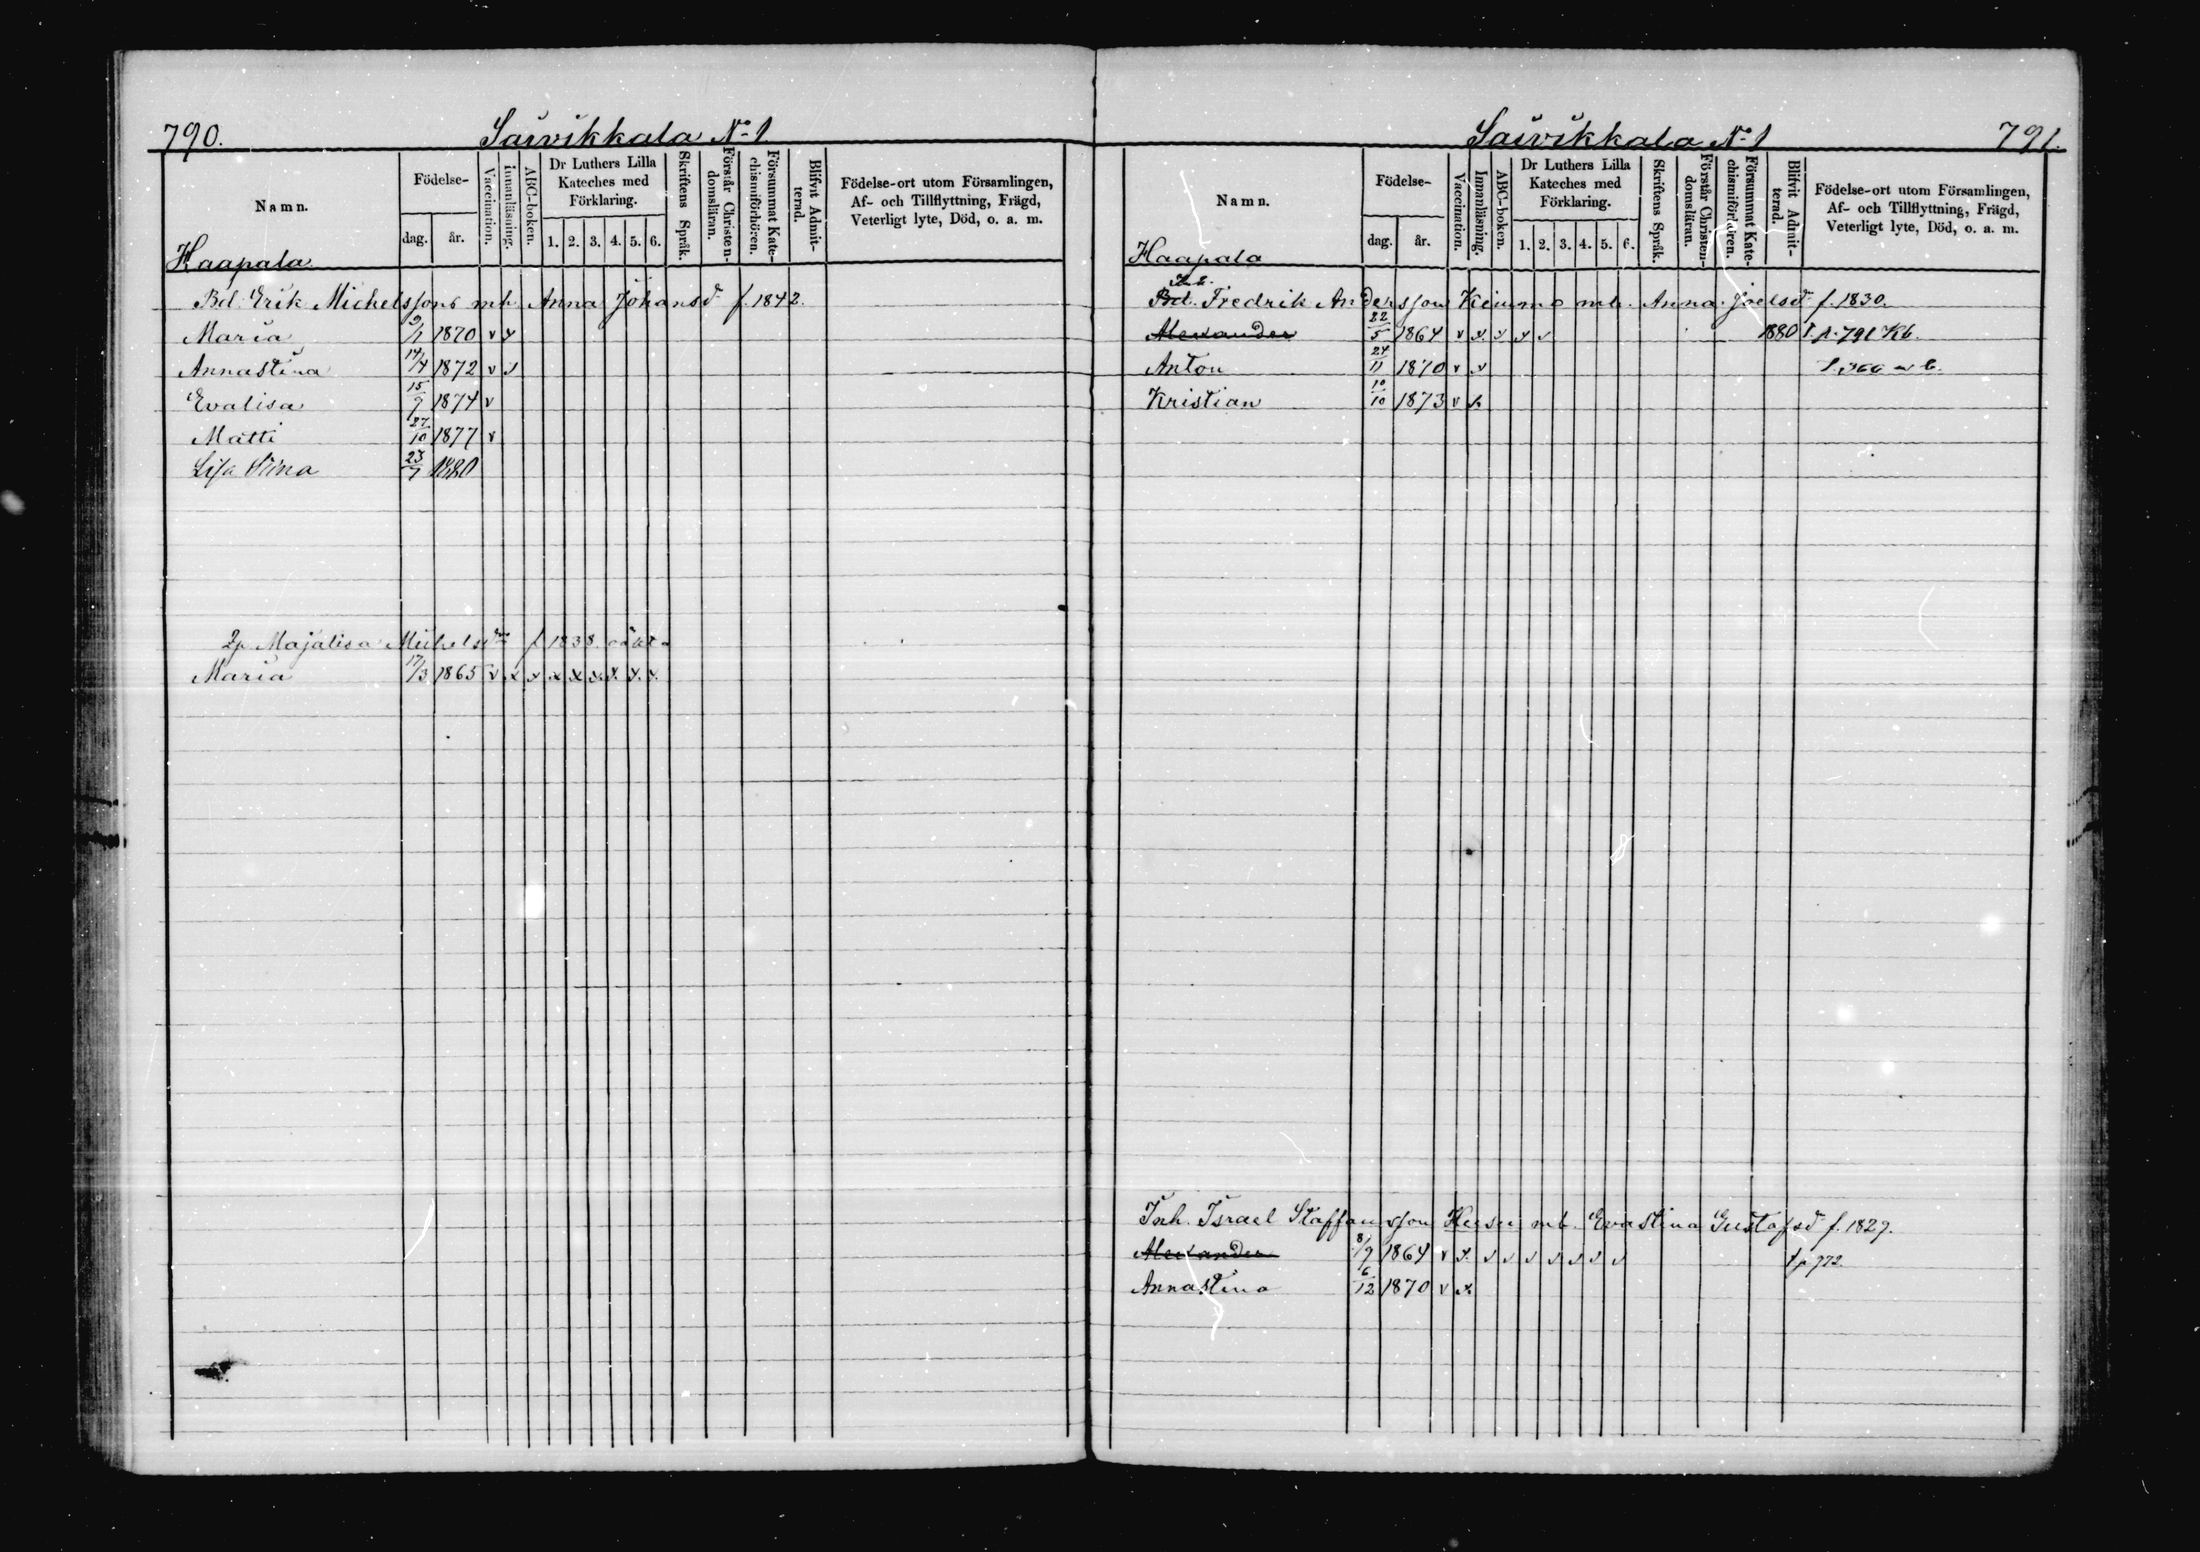 790.
Saivikkala No 1
Namn.
Födelse-
dag.
år.
Vaccination.
Innanläsning.
ABC-boken.
Dr Luthers Lilla
Kateches med
Förklaring.
1. 2. 3. 4. 5. 6.
Skriftens Språk.
Förstår Christen-
domsläran.
Försummat Kate-
chismiförhören.
Blifvit Admit-
terad.
Födelse-ort utom Församlingen,
Af- och Tillflyttning, Frägd,
Veterligt lyte, Död, o. a. m.
Haapala
Bd. Erik Michelssons mh. Anna Johansd f. 1842.
Maria 9/1 1870 v x
Annastina 14/4 1872 v x
Evalisa 15/9 1874 v
Matti 27/10 1877 v
Lisa Stina 23/7 1880
Majalisa Michelsd f 1838
Maria 17/3 1865 v x x x x x x x x
Saivikkala No 1
791.
Namn.
Födelse-
dag.
år.
Vaccination.
Innanläsning.
ABC-boken.
Dr Luthers Lilla
Kateches med
Förklaring.
1. 2. 3. 4. 5. 6.
Skriftens Språk.
Förstår Christen-
domsläran.
Försummat Kate-
chismiförhören.
Blifvit Admit-
terad.
Födelse-ort utom Församlingen,
Af- och Tillflyttning, Frägd,
Veterligt lyte, Död, o. a. m.
Haapala
Bd. Fredrik Andersson Keimmo mh. Anna Joelsd f. 1830.
Alexander 22/5 1864 v x x x x 1880 p. 791 Kb.
Anton 24/11 1870 v x
Kristian 10/10 1873 v x
Inh. Israel Staffansson mh. Evastina Gustafsd f. 1829.
Alexander 8/9 1864 v x x x x x x x x p 972
Annastina 6/12 1870 v x